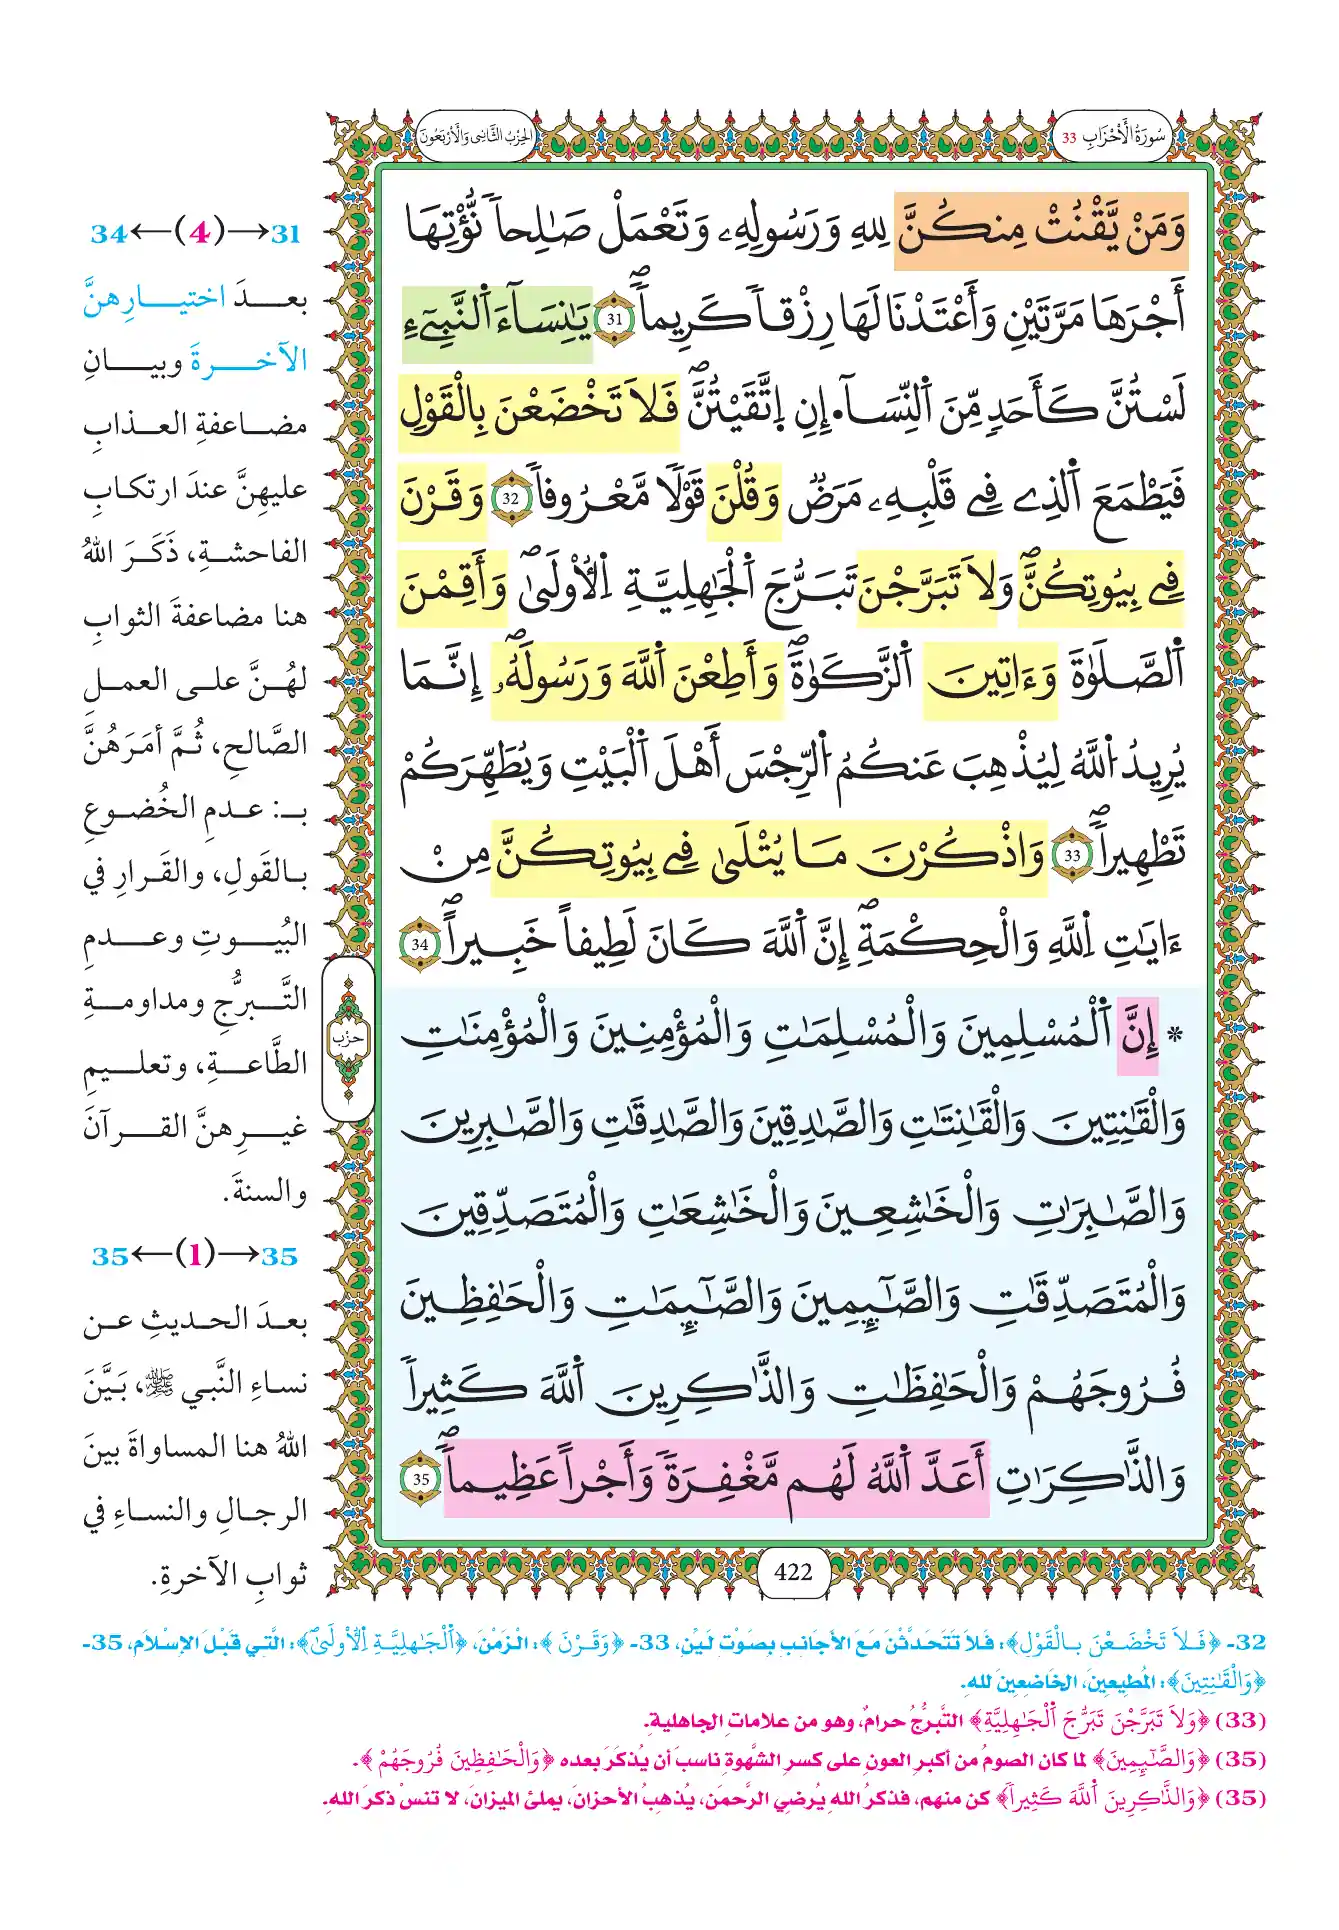 سُورَةُ الأَحْزَابِ 33
الحِزْبُ الثَّانِي وَالأَرْبَعُونَ
وَمَنْ يَّقْنُتْ مِنكُنَّ لِلهِ وَرَسُولِهِۦ وَتَعْمَلْ صَٰلِحاٗ نُّؤْتِهَا
أَجْرَهَا مَرَّتَيْنِ وَأَعْتَدْنَا لَهَا رِزْقاٗ كَرِيماٗۖ 31 يَٰنِسَآءَ اَ۬لنَّبِيٓءِ
لَسْتُنَّ كَأَحَدٖ مِّنَ اَ۬لنِّسَآءِ انِ اِ۪تَّقَيْتُنَّۖ فَلَا تَخْضَعْنَ بِالْقَوْلِ
فَيَطْمَعَ اَ۬لذِے فِے قَلْبِهِۦ مَرَضٞ وَقُلْنَ قَوْلاٗ مَّعْرُوفاٗ 32 وَقَرْنَ
فِے بِيُوتِكُنَّۖ وَلَا تَبَرَّجْنَ تَبَرُّجَ اَ۬لْجَٰهِلِيَّةِ اِ۬لُاولَيٰۖ وَأَقِمْنَ
اَ۬لصَّلَوٰةَ وَءَاتِينَ اَ۬لزَّكَوٰةَۖ وَأَطِعْنَ اَ۬للَّهَ وَرَسُولَهُۥۖ إِنَّمَا
يُرِيدُ اُ۬للَّهُ لِيُذْهِبَ عَنكُمُ اُ۬لرِّجْسَ أَهْلَ اَ۬لْبَيْتِ وَيُطَهِّرَكُمْ
تَطْهِيراٗۖ 33 وَاذْكُرْنَ مَا يُتْلَيٰ فِے بِيُوتِكُنَّ مِنَ
اٰيَٰتِ اِ۬للَّهِ وَالْحِكْمَةِۖ إِنَّ اَ۬للَّهَ كَانَ لَطِيفاً خَبِيراًۖ 34
* إِنَّ اَ۬لْمُسْلِمِينَ وَالْمُسْلِمَٰتِ وَالْمُؤْمِنِينَ وَالْمُؤْمِنَٰتِ
وَالْقَٰنِتِينَ وَالْقَٰنِتَٰتِ وَالصَّٰدِقِينَ وَالصَّٰدِقَٰتِ وَالصَّٰبِرِينَ
وَالصَّٰبِرَٰتِ وَالْخَٰشِعِينَ وَالْخَٰشِعَٰتِ وَالْمُتَصَدِّقِينَ
وَالْمُتَصَدِّقَٰتِ وَالصَّٰٓئِمِينَ وَالصَّٰٓئِمَٰتِ وَالْحَٰفِظِينَ
فُرُوجَهُمْ وَالْحَٰفِظَٰتِ وَالذَّٰكِرِينَ اَ۬للَّهَ كَثِيراٗ
وَالذَّٰكِرَٰتِ أَعَدَّ اَ۬للَّهُ لَهُم مَّغْفِرَةٗ وَأَجْراً عَظِيماٗۖ 35
حزب
422
31→(4)←34
بعدَ اختيارِهنَّ
الآخرةَ وبيانِ
مضاعفةِ العذابِ
عليهِنَّ عندَ ارتكابِ
الفاحشةِ، ذَكَرَ اللهُ
هنا مضاعفةَ الثوابِ
لهُنَّ على العملِ
الصَّالحِ، ثُمَّ أمَرَهُنَّ
بـ: عدمِ الخُضوعِ
بالقَولِ، والقَرارِ في
البُيوتِ وعدمِ
التَّبرُّجِ ومداومةِ
الطَّاعةِ، وتعليمِ
غيرِهنَّ القرآنَ
والسنةَ.
35→(1)←35
بعدَ الحديثِ عن
نساءِ النَّبي ﷺ، بَيَّنَ
اللهُ هنا المساواةَ بينَ
الرجالِ والنساءِ في
ثوابِ الآخرةِ.
32- ﴿فَلَا تَخْضَعْنَ بِالْقَوْلِ﴾: فَلَا تَتَحَدَّثْنَ مَعَ الأَجَانِبِ بِصَوْتٍ لَيِّنٍ، 33- ﴿وَقَرْنَ﴾: الْزَمْنَ، ﴿اَ۬لْجَٰهِلِيَّةِ اِ۬لُاولَيٰ﴾: الَّتِي قَبْلَ الإِسْلَامِ، 35-
﴿وَالْقَٰنِتِينَ﴾: المُطِيعِينَ، الخَاضِعِينَ للهِ.
(33) ﴿وَلَا تَبَرَّجْنَ تَبَرُّجَ اَ۬لْجَٰهِلِيَّةِ﴾ التَّبرُّجُ حرامٌ، وهو من علاماتِ الجاهليةِ.
(35) ﴿وَالصَّٰٓئِمِينَ﴾ لما كان الصومُ من أكبرِ العونِ على كسرِ الشَّهوةِ ناسبَ أن يُذكَرَ بعده ﴿وَالْحَٰفِظِينَ فُرُوجَهُمْ﴾.
(35) ﴿وَالذَّٰكِرِينَ اَ۬للَّهَ كَثِيراٗ﴾ كن منهم، فذكرُ اللهِ يُرضِي الرَّحمنَ، يُذهبُ الأحزانَ، يملئُ الميزانَ، لا تنسْ ذكرَ اللهِ.